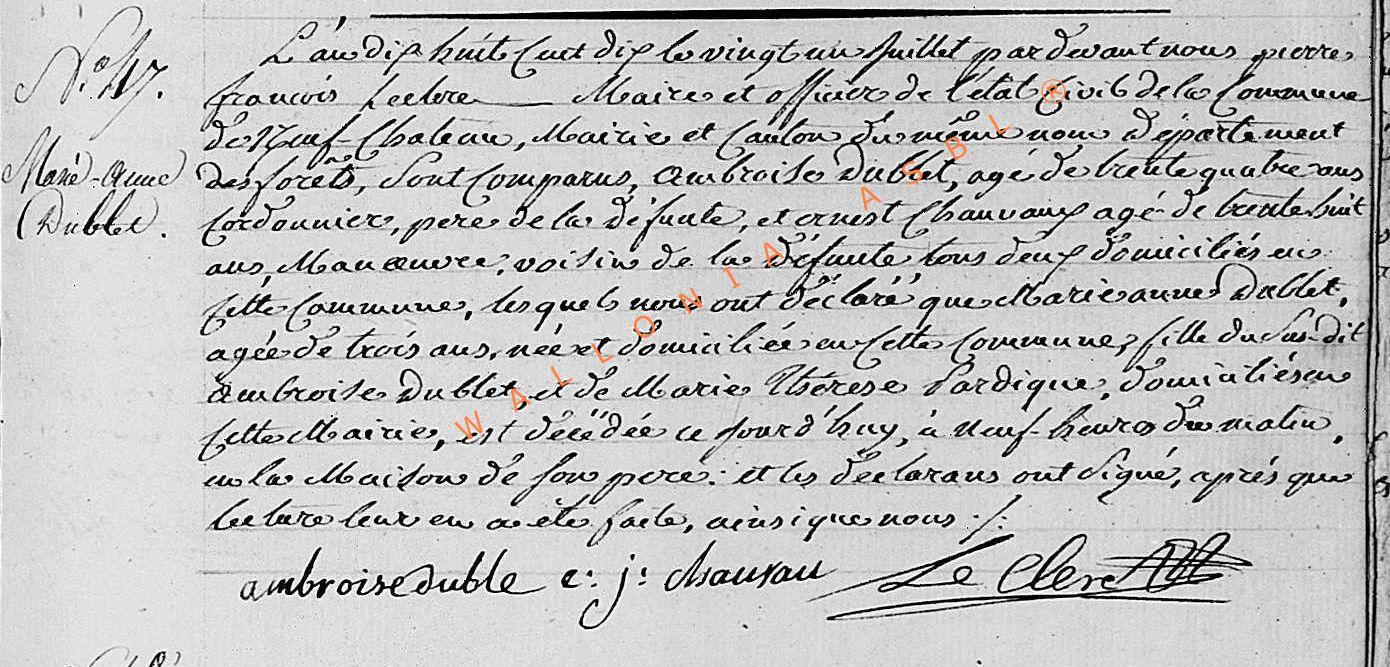 N.º 47.
Marie-Anne
Dublet.
L'an dix huit Cent dix le vingt un Juillet par devant nous pierre
françois Leclerc Maire et officier de l'état Civil de la Commune
de Neuf-Chateau, Mairie et Canton du même nom Département
des forêts, Sont Comparus, Ambroise Dublet, agé de trente quatre ans
Cordonnier, pere de la défunte, et ernest Chauvaux agé de trente huit
ans, Manœuvre, voisin de la défunte tous deux domiciliés en
Cette Commune, lesquels nous ont déclaré que Marie anne Dublet,
agée de trois ans, née et domiciliée en Cette Commune, fille du Sus-dit
Ambroise Dublet, et de Marie Thérese Lardique, domiciliés en
Cette Mairie, est décédée ce Jourd'huy, à neuf heures du matin,
en la Maison de son pere. et les déclarans ont Signé, après que
lecture leur en a été faite, ainsi que nous ./.
ambroise duble e: j: chauvau Le Clerc
WALLONIA ASBL ®